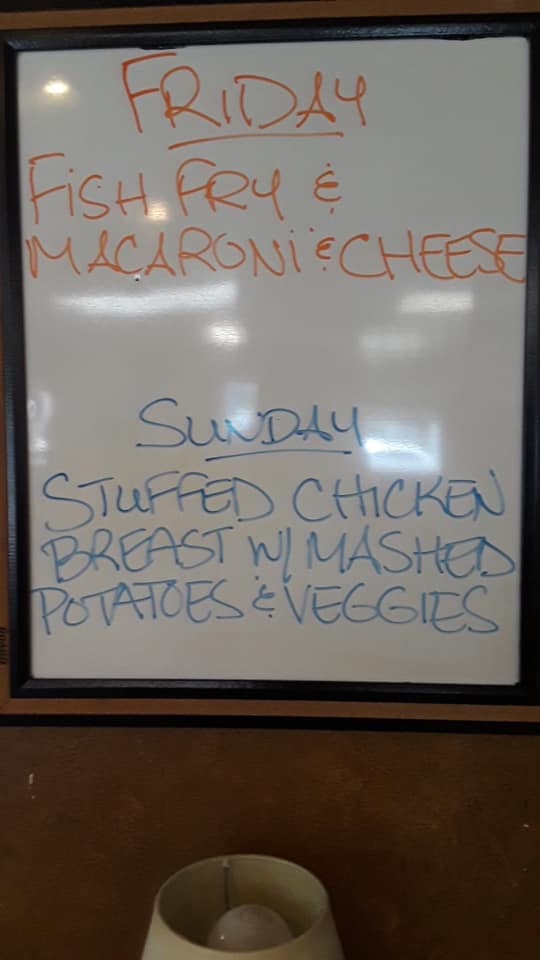 FRIDAY
FiSH FRY &
MACARONi & CHEESE
SUNDAY
STUFFED CHICKEN
BREAST W/ MASHED
POTATOES & VEGGIES